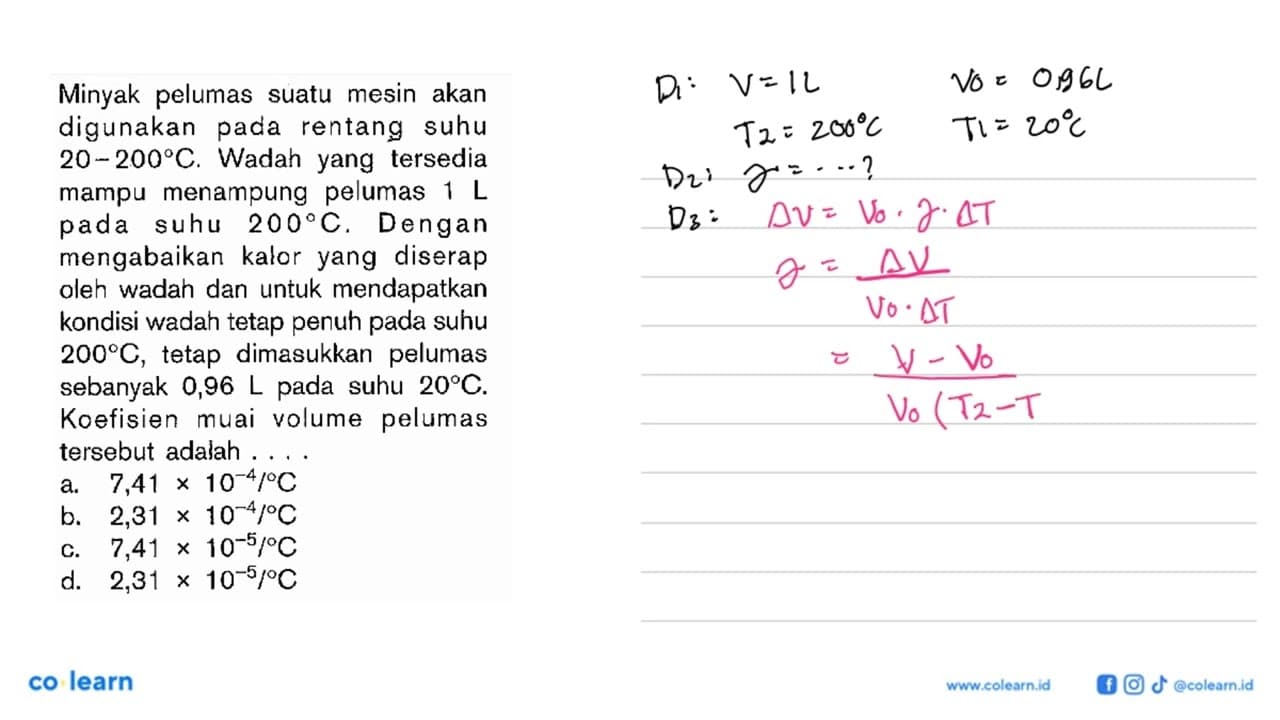 Minyak pelumas suatu mesin akan
digunakan pada rentang suhu
20 – 200°C. Wadah yang tersedia
mampu menampung pelumas 1 L
pada suhu 200°C. Dengan
mengabaikan kalor yang diserap
oleh wadah dan untuk mendapatkan
kondisi wadah tetap penuh pada suhu
200°C, tetap dimasukkan pelumas
sebanyak 0,96 L pada suhu 20°C.
Koefisien muai volume pelumas
tersebut adalah . . . .
a. 7,41 × 10⁻⁴/°C
b. 2,31 × 10⁻⁴/°C
c. 7,41 × 10⁻⁵/°C
d. 2,31 × 10⁻⁵/°C
D1: V = 1L V0 = 0,96L
T2 = 200°C T1 = 20°C
D2: γ = ....?
D3: ΔV = V0 . γ . ΔT
γ = ΔV / V0 . ΔT
= V - V0 / V0 (T2 - T
co learn
www.colearn.id @colearn.id